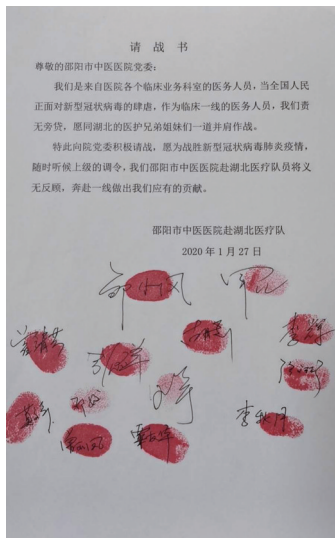 请战书
尊敬的邵阳市中医医院党委：
我们是来自医院各个临床业务科室的医务人员，当全国人民
正面对新型冠状病毒的肆虐，作为临床一线的医务人员，我们责
无旁贷，愿同湖北的医护兄弟姐妹们一道并肩作战。
特此向院党委积极请战，愿为战胜新型冠状病毒肺炎疫情，
随时听候上级的调令，我们邵阳市中医医院赴湖北医疗队员将义
无反顾，奔赴一线做出我们应有的贡献。
邵阳市中医医院赴湖北医疗队
2020年1月27日